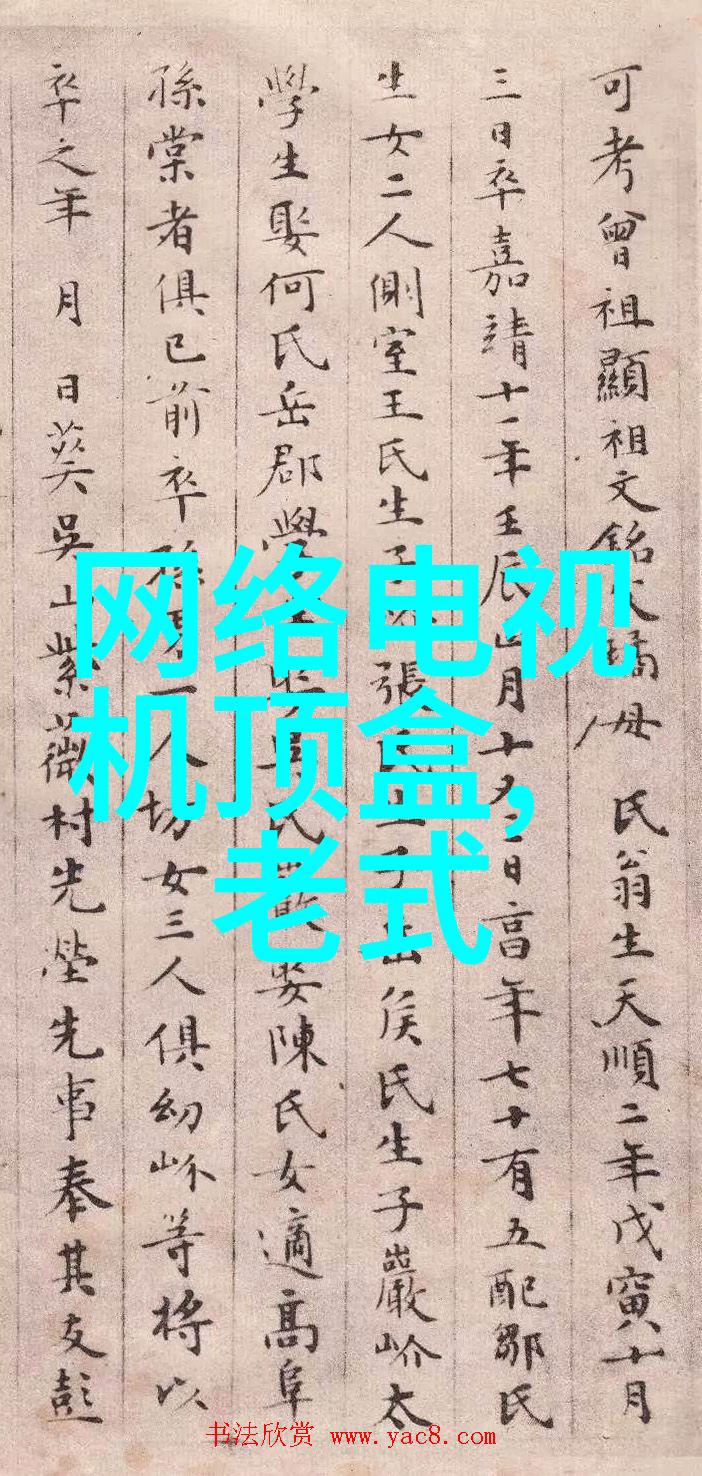 可考曾祖顯祖文銘父 母 氏翁生天順二年戊寅十月
三日卒嘉靖十一年壬辰正月十又二日享年七十有五配鄒氏
生女二人側室王氏生子 張氏生子岳侯氏生子巖岕太
學生娶何氏岳郡學 吳氏巖娶陳氏女適高阜
孫棠者俱已前卒孫男一人 女三人俱幼岕等將以
卒之年 月 日葬吳山紫薇村先塋先事奉其友彭
网络电视
机顶盒,
老式
书法欣赏 www.yac8.com